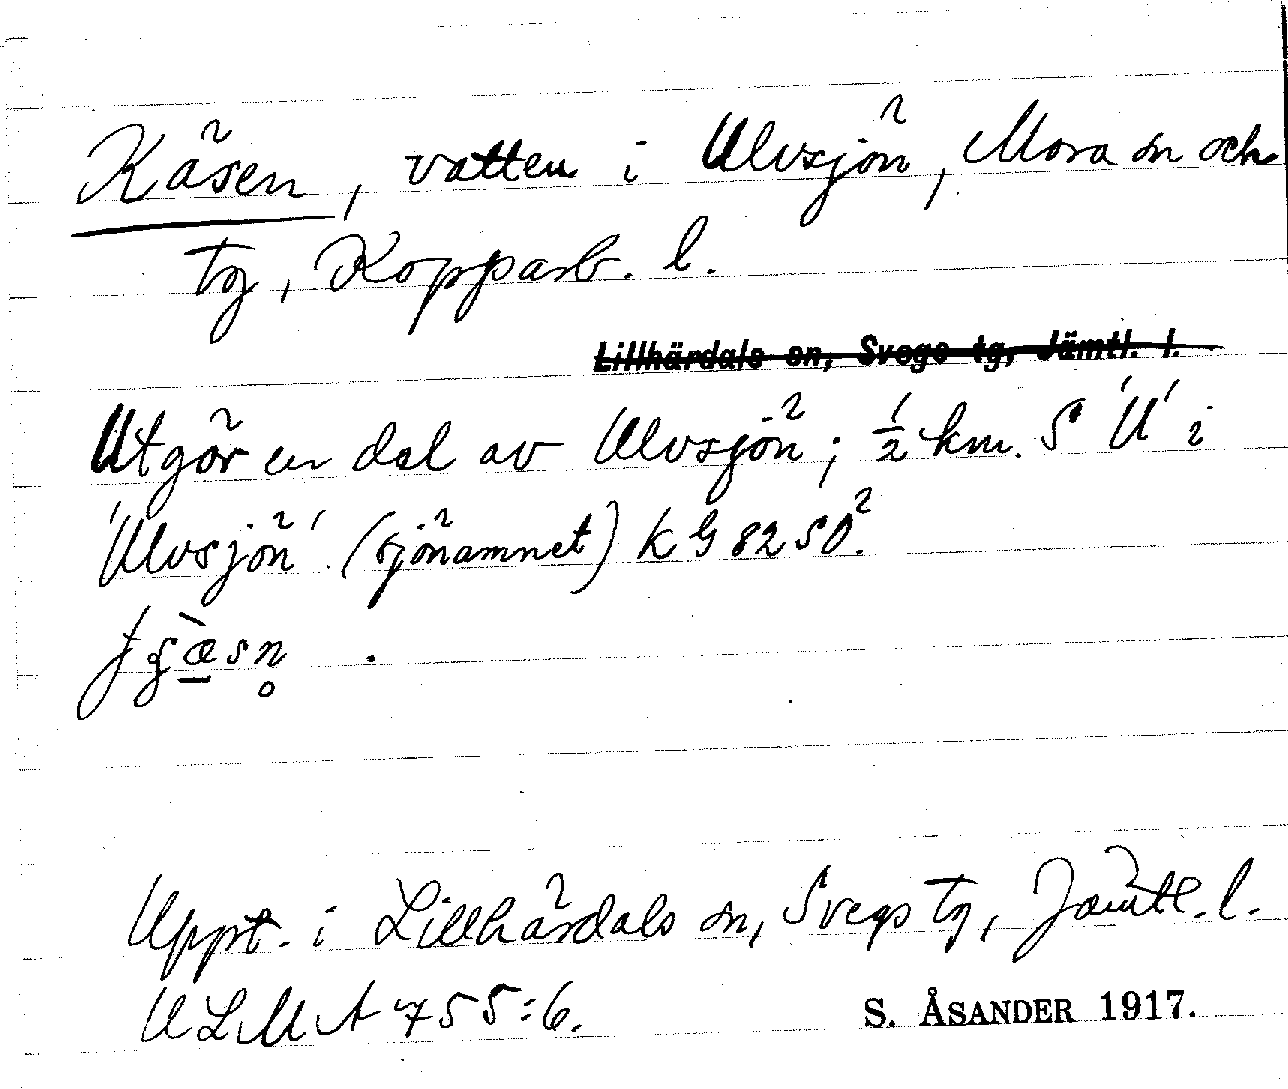 Käsen, vatten i Ulvsjön, Mora sn och
tg, Kopparb. l.
Lillhärdals sn, Svegs tg, Jämtl. l.
Utgör en del av Ulvsjön; ½ km. S 'U' i
'Ulvsjön' (sjönamnet) kG 8250².
Uppt. i Lillhärdals sn, Svegs tg, Jämtl. l.
ULMA 755:6.
S. ÅSANDER 1917.